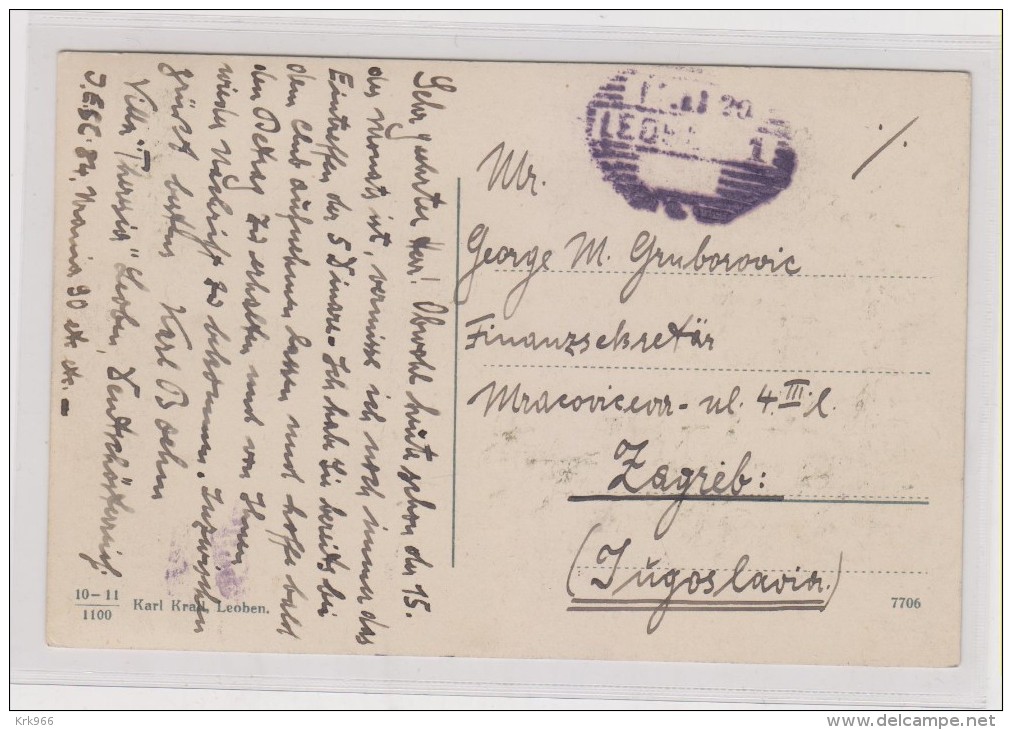 Sehr geehrter Herr! Obwohl heute schon der 15.
des Monats ist, vermisse ich noch immer das
Eintreffen der 5 Dinare. Ich habe Sie bereits bei
dem Club aufnehmen lassen und hoffe bald
den Betrag zu erhalten und von Ihnen
wieder Nachricht zu bekommen. Inzwischen
grüsst bestens Karl Boehm
Villa "Theresia" Leoben, Deutschösterreich.
90
LEOB 1
Mr.
George M. Gruborovic
Finanzsekretär
Mracoviceva-ul. 4 III l.
Zagreb:
(Jugoslavia.)
10-11
1100
Karl Krall, Leoben.
7706
Krk966
www.delcampe.net